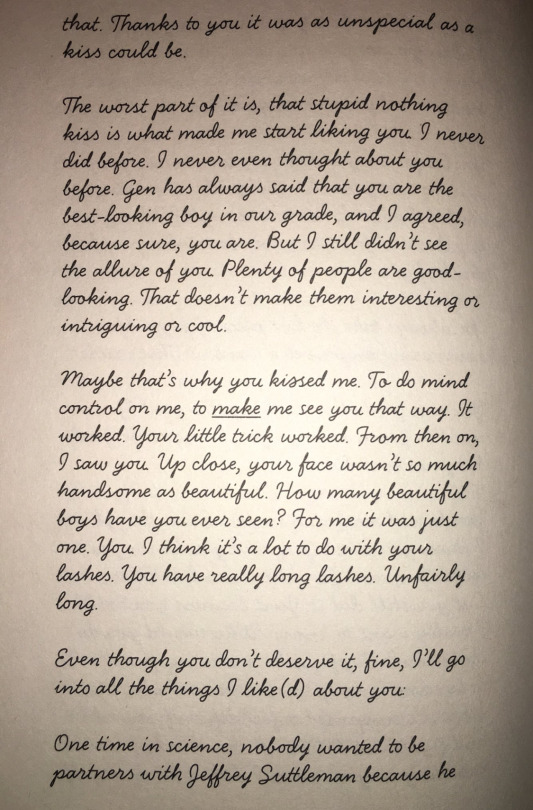 that. Thanks to you it was as unspecial as a
kiss could be.
The worst part of it is, that stupid nothing
kiss is what made me start liking you. I never
did before. I never even thought about you
before. Gen has always said that you are the
best-looking boy in our grade, and I agreed,
because sure, you are. But I still didn't see
the allure of you. Plenty of people are good-
looking. That doesn't make them interesting or
intriguing or cool.
Maybe that's why you kissed me. To do mind
control on me, to make me see you that way. It
worked. Your little trick worked. From then on,
I saw you. Up close, your face wasn't so much
handsome as beautiful. How many beautiful
boys have you ever seen? For me it was just
one. You. I think it's a lot to do with your
lashes. You have really long lashes. Unfairly
long.
Even though you don't deserve it, fine, I'll go
into all the things I like(d) about you:
One time in science, nobody wanted to be
partners with Jeffrey Suttleman because he